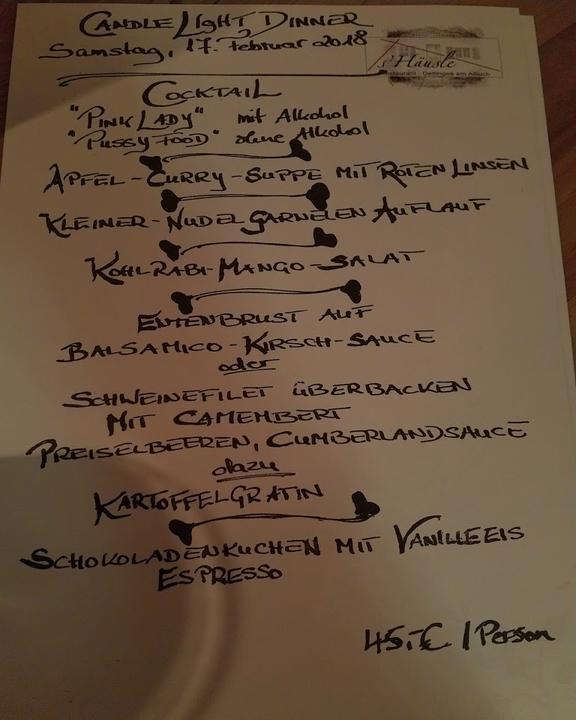 CANDLE LIGHT DINNER
Samstag, 17. Februar 2018
s'Häusle
Restaurant · Dettingen am Albuch
COCKTAIL
"PINK LADY" mit Alkohol
"PUSSY FOOD" ohne Alkohol
APFEL-CURRY-SUPPE MIT ROTEN LINSEN
KLEINER-NUDEL GARNELEN AUFLAUF
KOHLRABI-MANGO-SALAT
ENTENBRUST AUF
BALSAMICO-KIRSCH-SAUCE
oder
SCHWEINEFILET ÜBERBACKEN
MIT CAMEMBERT
PREISELBEEREN, CUMBERLANDSAUCE
dazu
KARTOFFELGRATIN
SCHOKOLADENKUCHEN MIT VANILLEEIS
ESPRESSO
45,-€ / Person